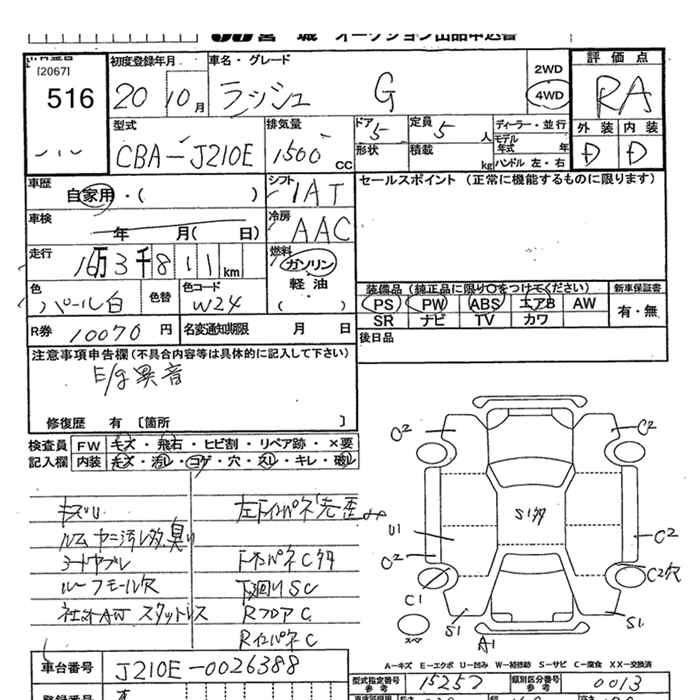 宮城 オークション出品申込書
[2067]
516
初度登録年月
20 10月
車名・グレード
ラッシュ G
2WD
4WD
評価点
RA
外装 内装
D D
型式
CBA-J210E
排気量
1500 CC
ドア 5
形状
定員 5 人
積載 kg
ディーラー・並行
モデル年式 年
ハンドル 左・右
車歴
自家用・( )
シフト
IAT
セールスポイント (正常に機能するものに限ります)
車検
年 月( 日)
冷房
AAC
走行
16万3千811km
燃料
ガソリン
軽油
( )
色
パール白
色替
色コード
W24
装備品 (純正品に限り〇をつけてください)
新車保証書
PS PW ABS エアB AW
SR ナビ TV カワ
有・無
R券 10070円
名変通知期限 月 日
後日品
注意事項申告欄 (不具合内容等は具体的に記入して下さい)
E/g異音
修復歴 有 〔箇所 〕
検査員記入欄
FW キズ・飛石・ヒビ割・リペア跡・×要
内装 キズ・汚レ・コゲ・穴・スレ・キレ・破レ
キズU
ルームヤニ汚レ多臭い
シートヤブレ
ルーフモール欠
社外AW スタッドレス
左Fインパネ先歪み
FインパネC多
下廻りSC
RフロアC
RインパネC
C2
C2
S1多
U1
C2
C2
C2穴
C1
スペア
S1
A1
S1
A-キズ E-エクボ U-凹み W-補修跡 S-サビ C-腐食 XX-交換済
車台番号 J210E-0026388
型式指定番号 参考 15257
類別区分番号 参考 0013
登録番号